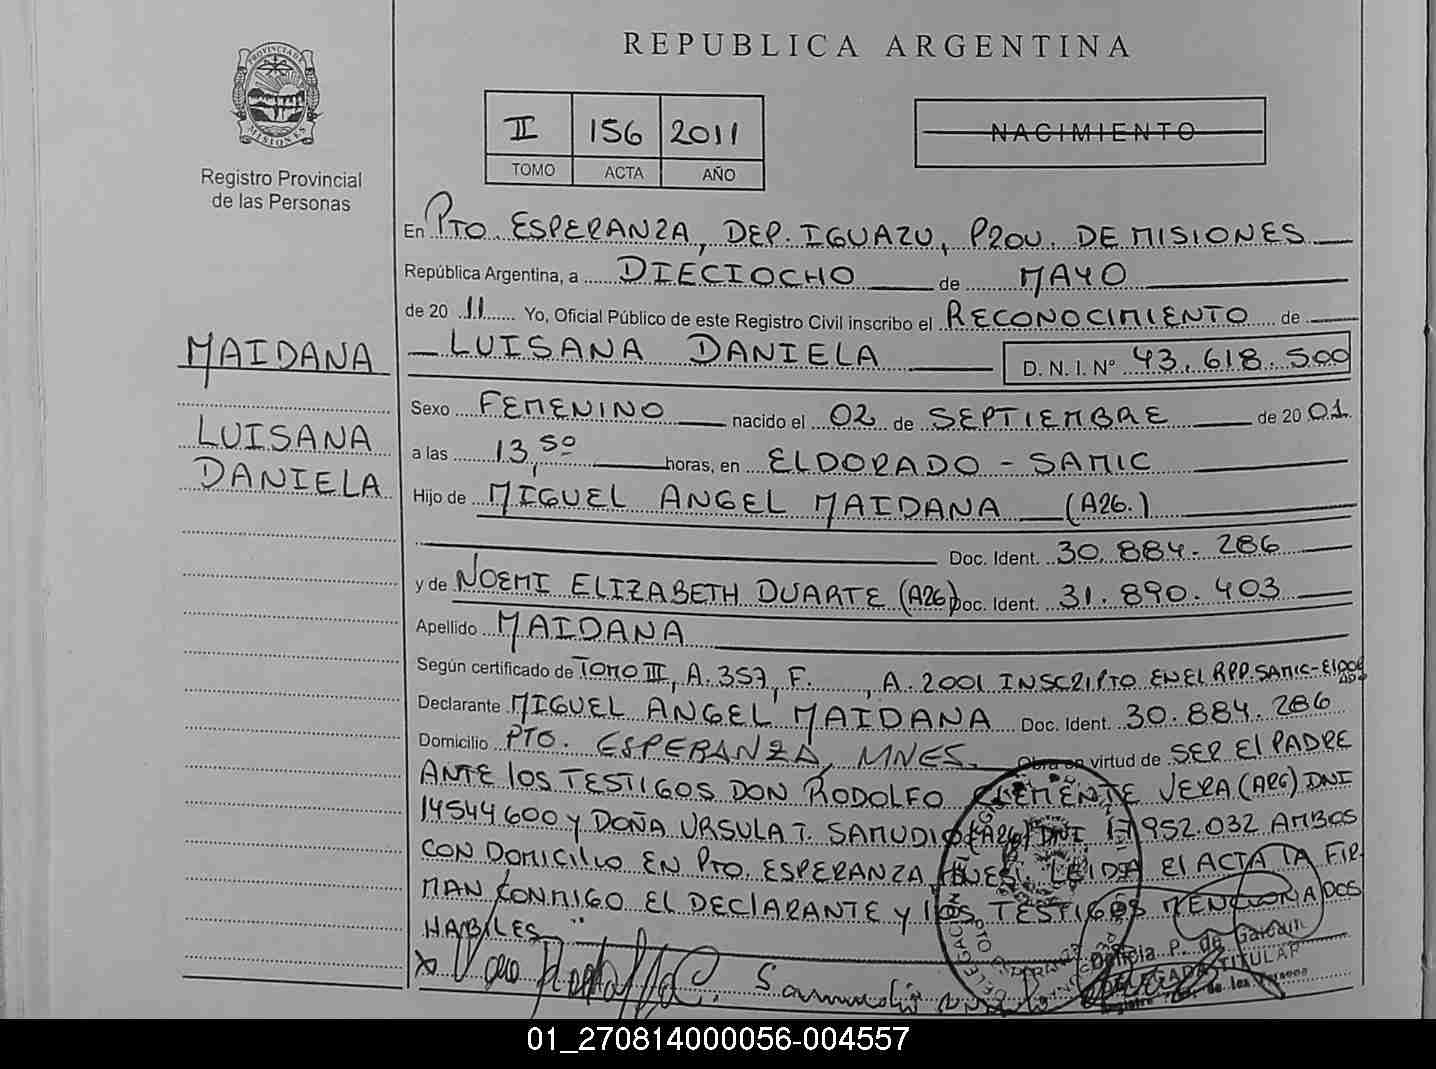 REPUBLICA ARGENTINA
PROVINCIA DE
MISIONES
Registro Provincial
de las Personas
II 156 2011
TOMO ACTA AÑO
NACIMIENTO
En PTO. ESPERANZA, DEP. IGUAZU, PROV. DE MISIONES
República Argentina, a DIECIOCHO de MAYO
de 20 11 Yo, Oficial Público de este Registro Civil inscribo el RECONOCIMIENTO de
MAIDANA
LUISANA DANIELA D. N. I. N° 43.618.500
LUISANA
DANIELA
Sexo FEMENINO nacido el 02 de SEPTIEMBRE de 20 01
a las 13,50 horas, en ELDORADO - SAMIC
Hijo de MIGUEL ANGEL MAIDANA (ARG.)
Doc. Ident. 30.884.286
y de NOEMI ELIZABETH DUARTE (ARG) Doc. Ident. 31.890.403
Apellido MAIDANA
Según certificado de TOMO III, A. 357, F. , A. 2001 INSCRIPTO EN EL RPP. SAMIC-
Declarante MIGUEL ANGEL MAIDANA Doc. Ident. 30.884.286
Domicilio PTO. ESPERANZA, MNES. Obra en virtud de SER El PADRE
ANTE los TESTIGOS DON RODOLFO CLEMENTE VERA (ARG) DNI
14544600 y DOÑA URSULA T. SAMUDIO (ARG) DNI 17952.032 AMBOS
CON DOMICILIO EN PTO. ESPERANZA, MNES. LEIDA El ACTA LA FIR-
MAN CONMIGO EL DEClARANTE y lOS TESTIGOS MENCIONADOS
HABILES "
x Vera Samudio
P. de
DELEGADA TITULAR
de las Personas
01_270814000056-004557